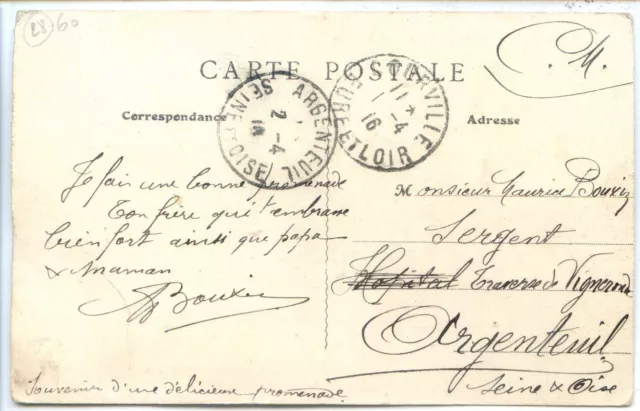 2860
C. M.
CARTE POSTALE
Correspondance
Adresse
ARGENTEUIL
2-4
16
SEINE ET OISE
COURVILLE
11 *
1-4
16
EURE ET LOIR
Je fais une bonne promenade
Ton frère qui t'embrasse
bien fort ainsi que papa
& maman
Bouxin
Souvenir d'une délicieuse promenade.
Monsieur Maurice Bouxin
Sergent
Hopital Traverse de Vignerons
Argenteuil
Seine & Oise